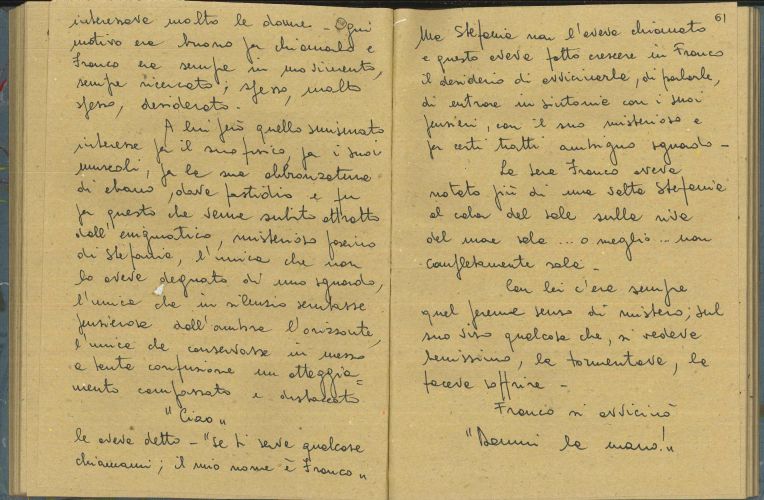 interessare molto le donne - Ogni
motivo era buono per chiamarlo e
Franco era sempre in movimento,
sempre ricercato; spesso, molto
spesso, desiderato.
A lui però quello smisurato
interesse per il suo fisico, per i suoi
muscoli, per la sua abbronzatura
di ebano, dava fastidio e fu
per questo che venne subito attratto
dall'enigmatico, misterioso fascino
di Stefania, l'unica che non
lo aveva degnato di uno sguardo,
l'unica che in silenzio scrutasse
pensierosa dall'ombra l'orizzonte,
l'unica che conservasse in mezzo
a tanta confusione un atteggia=
mento compassato e distaccato
"Ciao"
le aveva detto - "se ti serve qualcosa
chiamami; il mio nome è Franco"
61
Ma Stefania non l'aveva chiamato
e questo aveva fatto crescere in Franco
il desiderio di avvicinarla, di parlarle,
di entrare in sintonia con i suoi
pensieri, con il suo misterioso e
per certi tratti ambiguo sguardo -
La sera Franco aveva
notato più di una volta Stefania
al calar del sole sulla riva
del mare sola ... o meglio ... non
completamente sola -
Con lei c'era sempre
quel perenne senso di mistero; sul
suo viso qualcosa che, si vedeva
benissimo, la tormentava, la
faceva soffrire -
Franco si avvicinò
"Dammi la mano!"